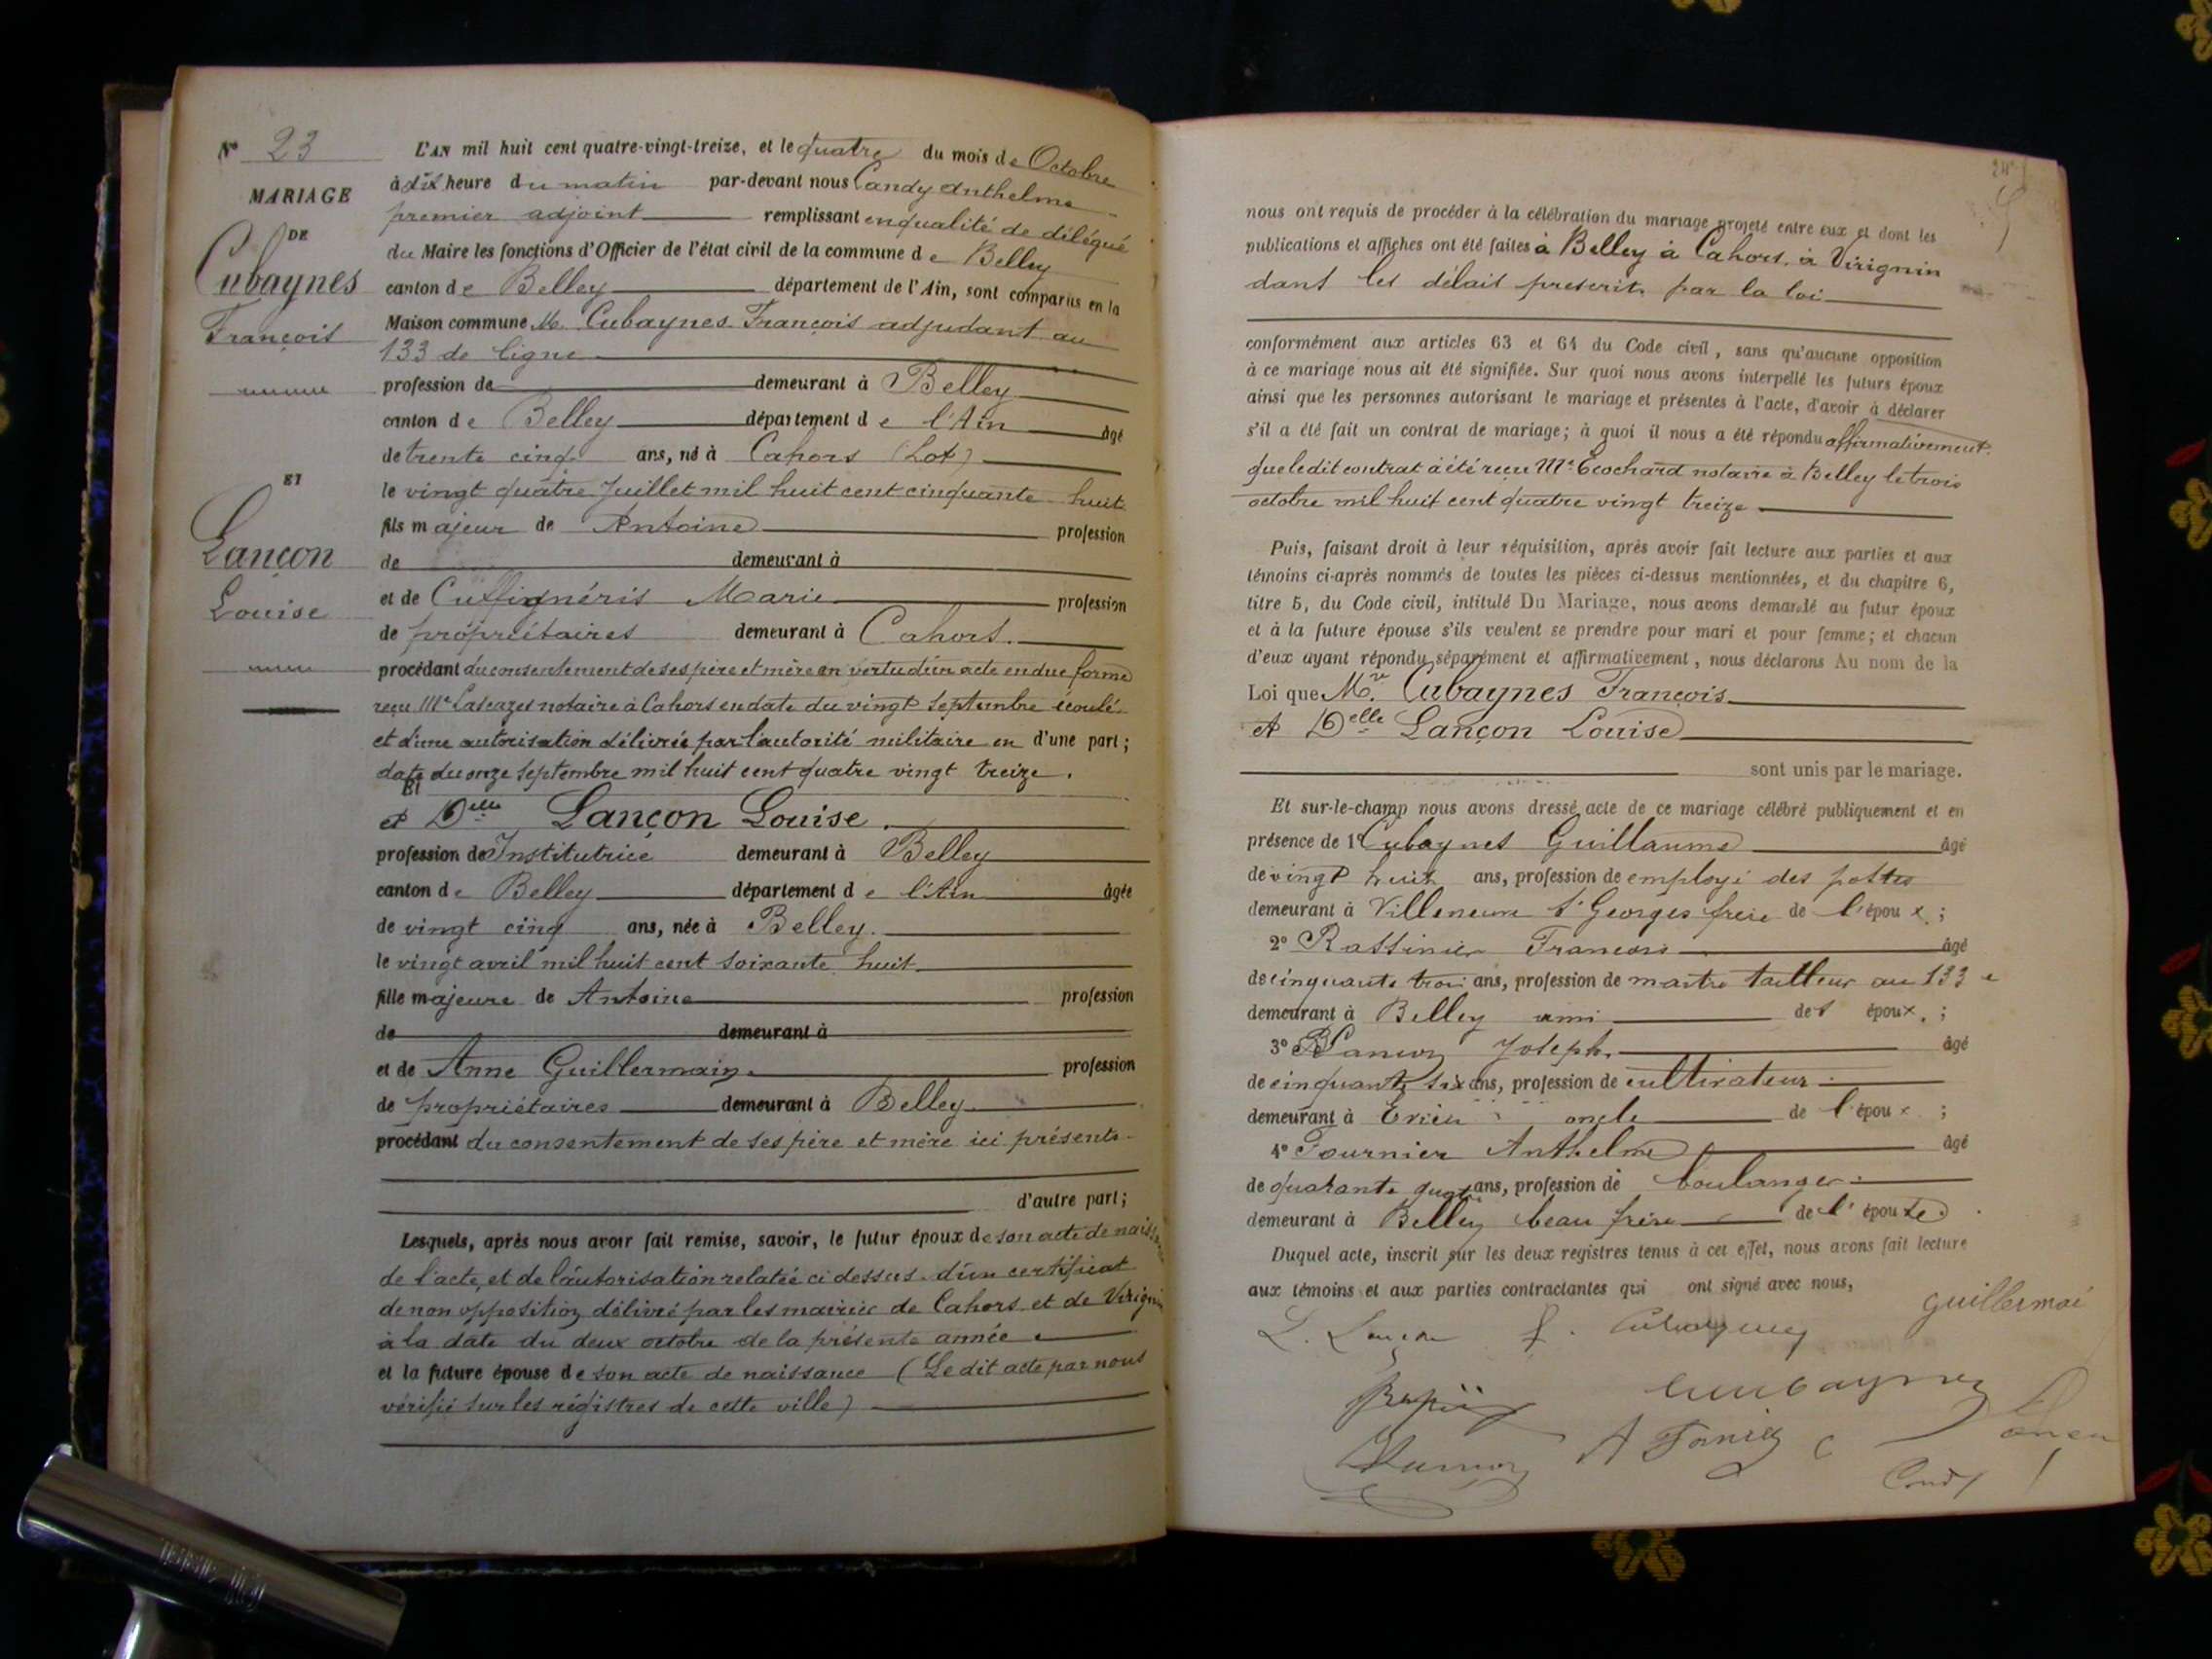 N° 23
MARIAGE
DE
Cubaynes
François
ET
Lançon
Louise
L'AN mil huit cent quatre-vingt-treize, et le quatre du mois de Octobre
à dix heure du matin par-devant nous Candy Anthelme
premier adjoint remplissant en qualité de délégué
du Maire les fonctions d'Officier de l'état civil de la commune de Belley
canton de Belley département de l'Ain, sont comparus en la
Maison commune Mr Cubaynes François adjudant au
133 de ligne
profession de demeurant à Belley
canton de Belley département de l'Ain âgé
de trente cinq ans, né à Cahors (Lot)
le vingt quatre Juillet mil huit cent cinquante huit
fils majeur de Antoine profession
de demeurant à
et de Marie profession
de propriétaires demeurant à Cahors.
procédant du consentement de ses père et mère en vertu d'un acte en due forme
reçu Me Lascazes notaire à Cahors en date du vingt Septembre écoulé
et d'une autorisation délivrée par l'autorité militaire en d'une part;
date du onze Septembre mil huit cent quatre vingt treize.
ET
et Delle Lançon Louise.
profession de Institutrice demeurant à Belley
canton de Belley département de l'Ain âgée
de vingt cinq ans, née à Belley.
le vingt avril mil huit cent soixante huit
fille majeure de Antoine profession
de demeurant à
et de Anne Guillermain. profession
de propriétaires demeurant à Belley.
procédant du consentement de ses père et mère ici présents
d'autre part;
Lesquels, après nous avoir fait remise, savoir, le futur époux de son acte de naissance
de l'acte, et de l'autorisation relatée ci dessus. d'un certificat
de non opposition délivré par les mairies de Cahors et de Virignin
à la date du deux octobre de la présente année
et la future épouse de son acte de naissance (Le dit acte par nous
vérifié sur les régistres de cette ville)
24
nous ont requis de procéder à la célébration du mariage projeté entre eux et dont les
publications et affiches ont été faites à Belley à Cahors. à Virignin
dans les délais prescrits par la loi
conformément aux articles 63 et 64 du Code civil, sans qu'aucune opposition
à ce mariage nous ait été signifiée. Sur quoi nous avons interpellé les futurs époux
ainsi que les personnes autorisant le mariage et présentes à l'acte, d'avoir à déclarer
s'il a été fait un contrat de mariage; à quoi il nous a été répondu affirmativement.
que ledit contrat à été reçu Me Ecochard notaire à Belley le trois
octobre mil huit cent quatre vingt treize.
Puis, faisant droit à leur réquisition, après avoir fait lecture aux parties et aux
témoins ci-après nommés de toutes les pièces ci-dessus mentionnées, et du chapitre 6,
titre 5, du Code civil, intitulé Du Mariage, nous avons demandé au futur époux
et à la future épouse s'ils veulent se prendre pour mari et pour femme; et chacun
d'eux ayant répondu séparément et affirmativement, nous déclarons Au nom de la
Loi que Mr Cubaynes François
et Delle Lançon Louise
sont unis par le mariage.
Et sur-le-champ nous avons dressé acte de ce mariage célébré publiquement et en
présence de 1° Cubaynes Guillaume âgé
de vingt huit ans, profession de employé des postes
demeurant à Villeneuve St Georges frère de l'époux;
2° Rassinier Francois âgé
de cinquante trois ans, profession de maitre tailleur au 133e
demeurant à Belley ami des époux.;
3° Joseph. âgé
de cinquante six ans, profession de cultivateur
demeurant à oncle de l'époux;
4° Fournier Anthelme âgé
de quarante quatre ans, profession de boulanger.
demeurant à Belley beau frère de l'épouse.
Duquel acte, inscrit sur les deux registres tenus à cet effet, nous avons fait lecture
aux témoins et aux parties contractantes qui ont signé avec nous,
L. Lançon F. Cubaynes Guillermai
Cubaynes
Candy